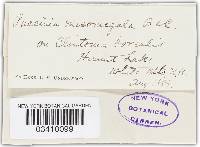 Puccinia mesomegala B & C.
on Clintonia borealis
Hermit Lake
White Mts N.H.
Aug
NEW YORK BOTANICAL GARDEN
03410099
NEW YORK
BOTANICAL
GARDEN